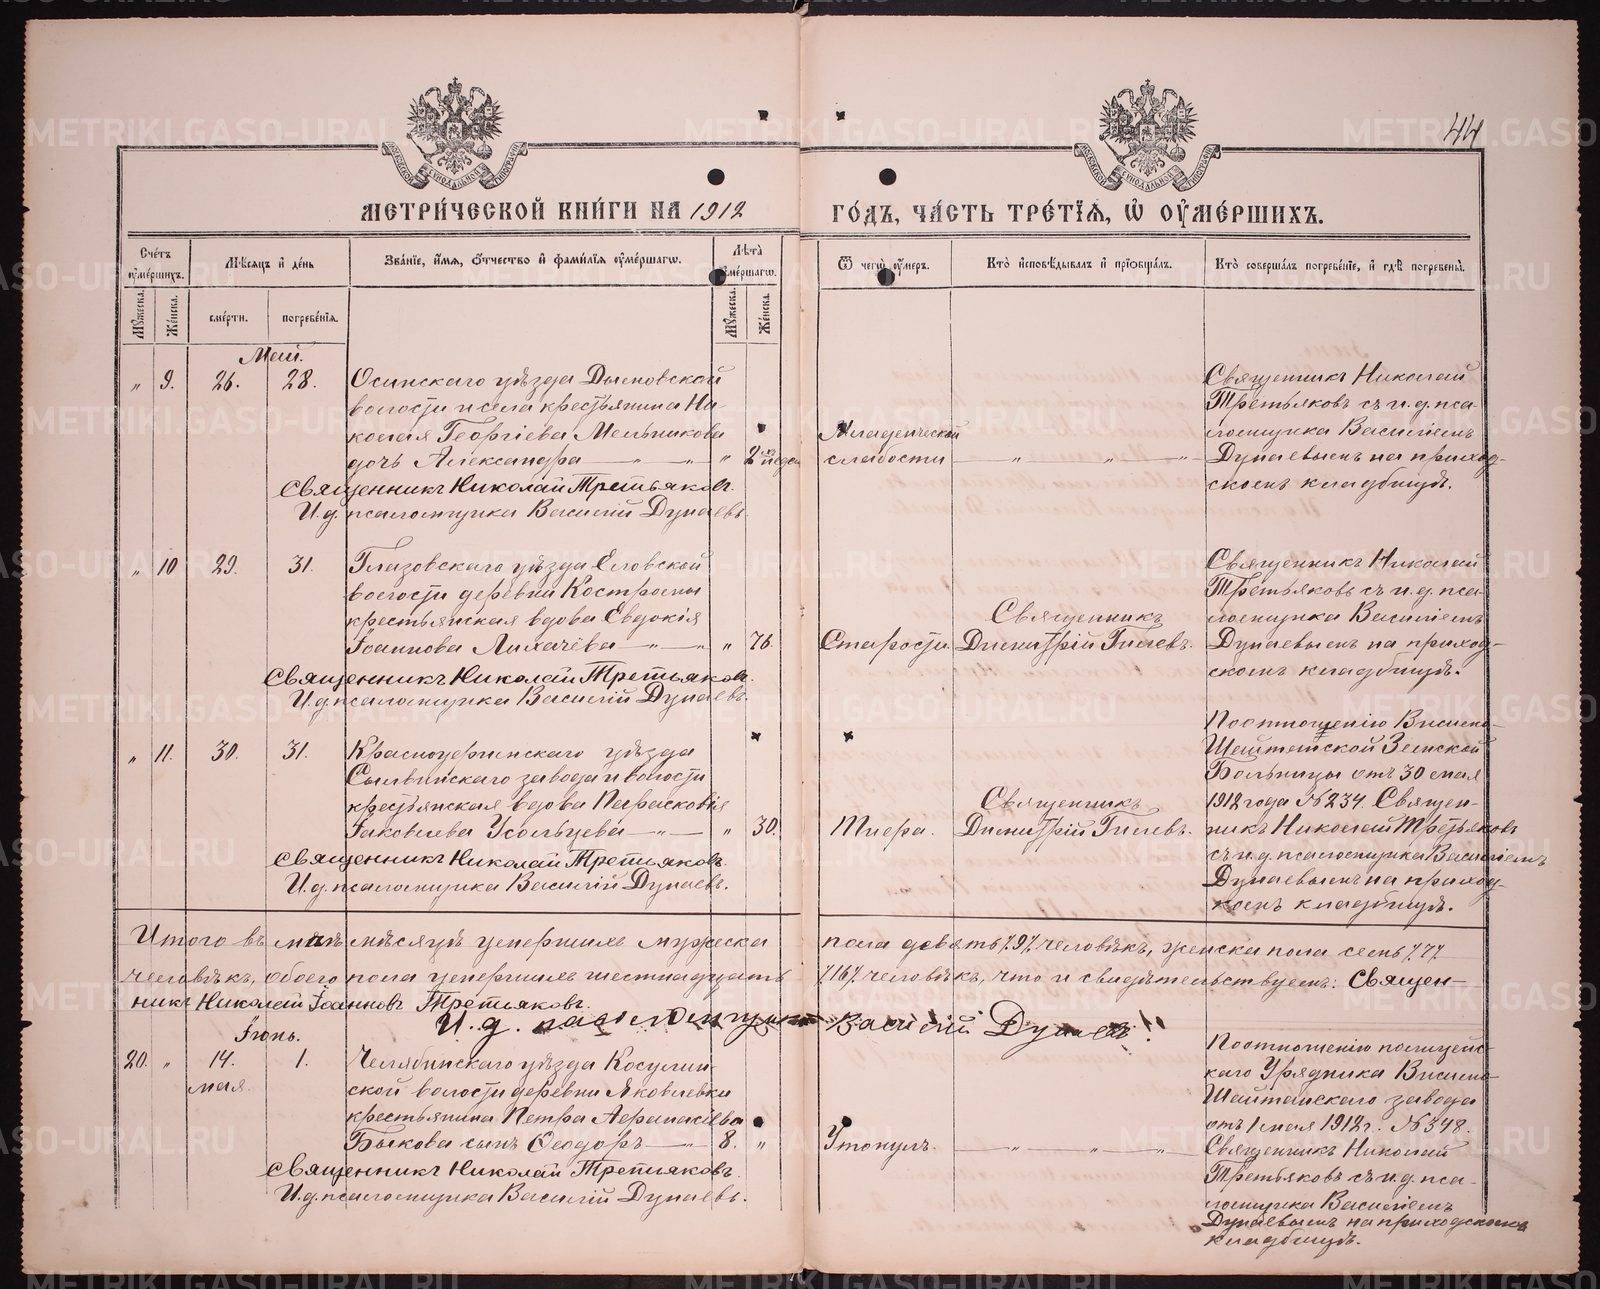 44
МЕТРИ́ЧЕСКОЙ КНИ́ГИ НА 1912 ГО́ДЪ, ЧА́СТЬ ТРЕ́ТЇѦ, Ѡ҆ ОУ҆МЕ́РШИХЪ.
Сче́тъ оу҆ме́ршихъ.
Мѣ́сяцъ и҆ де́нь
Зва́нїе, и҆́мѧ, ѻ҆́тчество и҆ фами́лїѧ оу҆ме́ршагѡ.
Лѣта̀ оу҆ме́ршагѡ.
Ѿ чегѡ̀ оу҆́меръ.
Кто̀ и҆сповѣ́дывалъ и҆ прїѡбща́лъ.
Кто̀ соверша́лъ погребе́нїе, и҆ гдѣ̀ погребены̀.
Му́жеска.
Же́нска.
сме́рти.
погребе́нїѧ.
Му́жеска.
Же́нска.
Май.
" 9. 26. 28.
Осинскаго уѣзда Дымовской
волости и села крестьянина Ни-
колая Георгіева Мельникова
дочь Александра — " — " — " 2 недѣл
Священникъ Николай Третьяковъ.
И.д. псаломщика Василій Дунаевъ.
Младенческой
слабости — " — " — " —
Священникъ Николай
Третьяковъ съ и.д. пса-
ломщика Василіемъ
Дунаевымъ на приход-
скомъ кладбищѣ.
" 10 29. 31.
Глазовскаго уѣзда Еловской
волости деревни Костромы
крестьянская вдова Евдокія
Іоаннова Лихачева — " — " — " 76.
Священникъ Николай Третьяковъ.
И.д. псаломщика Василій Дунаевъ.
Старости.
Священникъ
Димитрій Гилевъ.
Священникъ Николай
Третьяковъ съ и.д. пса-
ломщика Василіемъ
Дунаевымъ на приход-
скомъ кладбищѣ.
" 11. 30. 31.
Красноуфимскаго уѣзда
Сылвинскаго завода и волости
крестьянская вдова Парасковія
Іаковлева Усольцева — " — " 30.
Священникъ Николай Третьяковъ.
И.д. псаломщика Василій Дунаевъ.
Тифа.
Священникъ
Димитрій Гилевъ.
По отношенію Висимо-
Шайтанской Земской
Больницы отъ 30 мая
1912 года № 234. Священ-
никъ Николай Третьяковъ
съ и.д. псаломщика Василіемъ
Дунаевымъ на приход-
скомъ кладбищѣ.
Итого въ маѣ мѣсяцѣ умершихъ мужеска пола девять /9/ человѣкъ, женска пола семь /7/
человѣкъ, обоего пола умершихъ шестнадцать /16/ человѣкъ, что и свидѣтельствуемъ: Священ-
никъ Николай Іоанновъ Третьяковъ.
И. д. псаломщика Василій Дунаевъ.
Іюнь.
20. " 14. 1.
мая.
Челябинскаго уѣзда Косулин-
ской волости деревни Яковлевки
крестьянина Петра Афанасіева
Быкова сынъ Ѳеодоръ — " — 8. "
Священникъ Николай Третьяковъ.
И.д. псаломщика Василій Дунаевъ.
Утонулъ. — " — " — " —
По отношенію полицейс-
каго Урядника Висимо-
Шайтанскаго завода
отъ 1 іюля 1912 г. № 348.
Священникъ Николай
Третьяковъ съ и.д. пса-
ломщика Василіемъ
Дунаевымъ на приходскомъ
кладбищѣ.